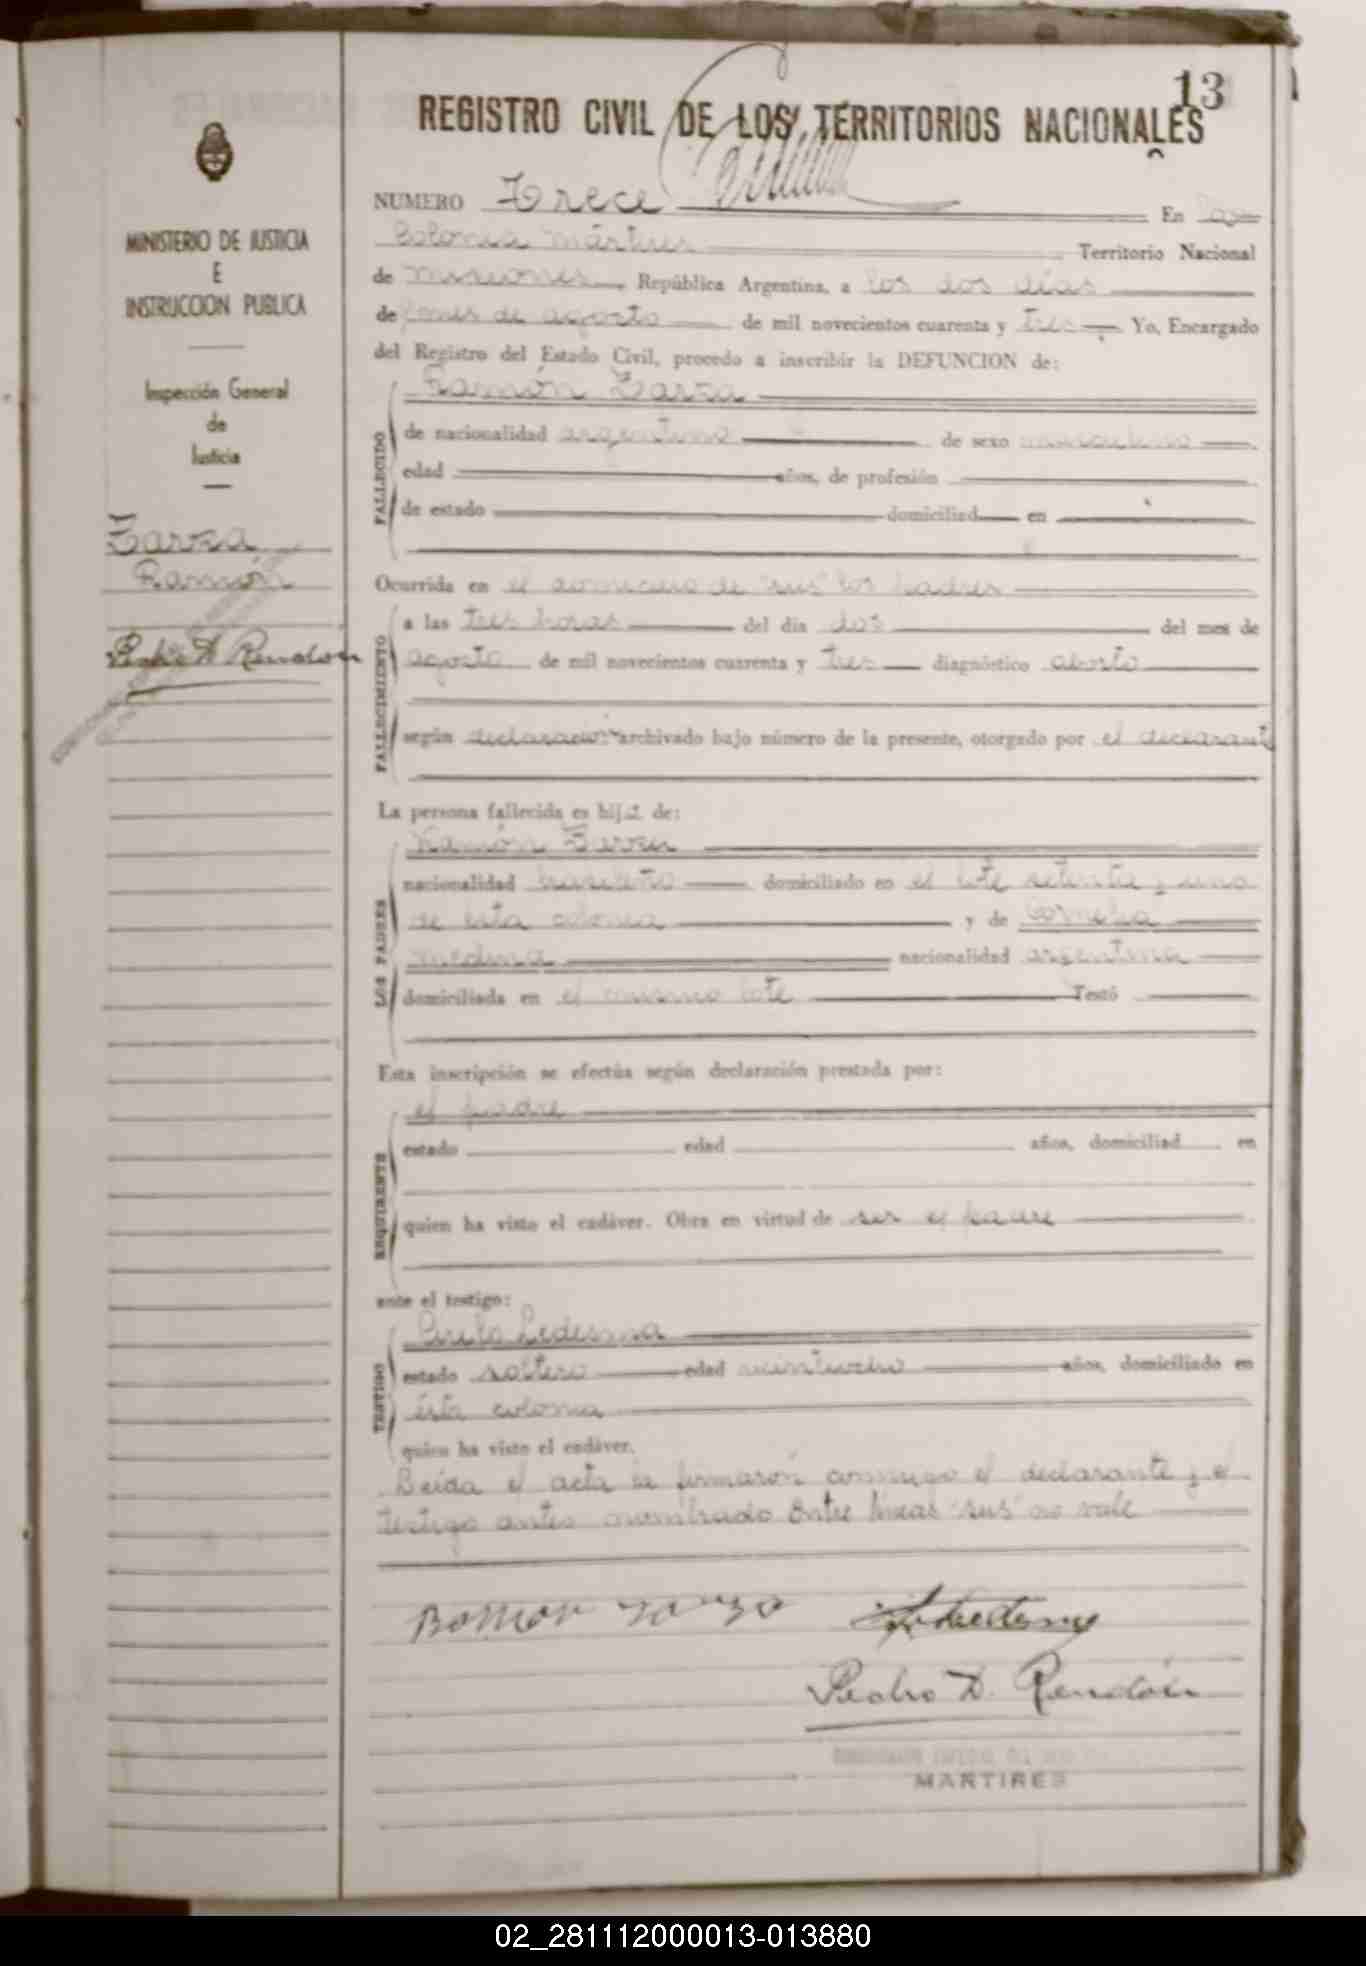 13
REGISTRO CIVIL DE LOS TERRITORIOS NACIONALES
MINISTERIO DE JUSTICIA
E
INSTRUCCION PUBLICA
Inspección General
de
Justicia
Zarza
Ramón
Pedro D. Rendón
NUMERO Trece En
Colonia Mártires Territorio Nacional
de Misiones, República Argentina, a los dos días
de mes de agosto de mil novecientos cuarenta y tres Yo, Encargado
del Registro del Estado Civil, procedo a inscribir la DEFUNCION de:
Ramón Zarza
FALLECIDO
de nacionalidad argentino de sexo masculino
edad años, de profesión
de estado domiciliad en
Ocurrida en el domicilio de "sus" los padres
FALLECIMIENTO
a las tres horas del dia dos del mes de
agosto de mil novecientos cuarenta y tres diagnóstico aborto
según declaración archivado bajo número de la presente, otorgado por el declarante
La persona fallecida es hijo de:
Ramón Zarza
LOS PADRES
nacionalidad domiciliado en el lote setenta y uno
de esta colonia y de Cornelia
Medina nacionalidad argentina
domiciliada en el mismo lote Testó
Esta inscripción se efectúa según declaración prestada por:
el padre
REQUIRENTE
estado edad años, domiciliad en
quien ha visto el cadáver. Obra en virtud de ser el padre
ante el testigo:
Cirilo Ledesma
TESTIGO
estado soltero edad años, domiciliado en
ésta colonia
quien ha visto el cadáver.
Leída el acta la firmarón conmigo el declarante y el
testigo antes nombrado Entre líneas "sus" no vale
Pedro D. Rendón
MARTIRES
02_281112000013-013880